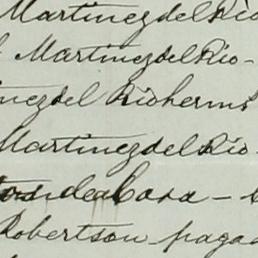 Martinez del Rio
Martinez del Rio -
nez del Rio herms
Martinez del Rio -
de la Cosa -
Robertson pagad